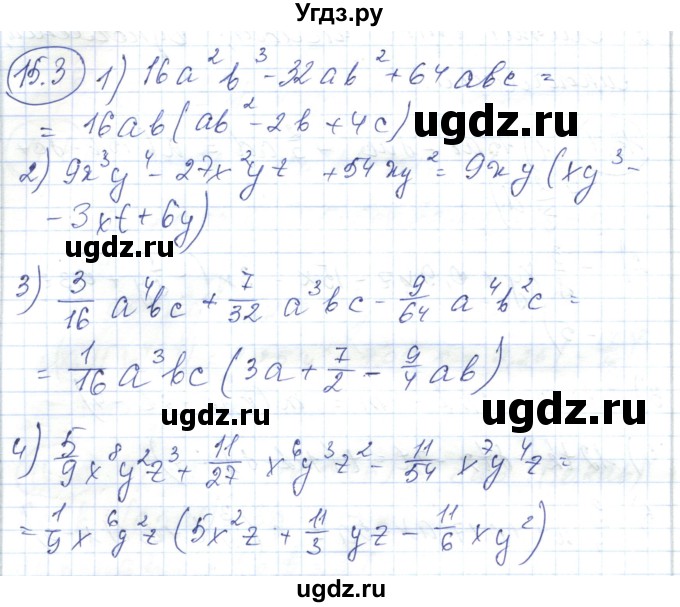 Угдз.ру
15.3 1) 16a²b³ - 32ab² + 64abc =
= 16ab(ab² - 2b + 4c)
ugdz.ru
2) 9x³y⁴ - 27x²yz + 54xy² = 9xy(xy³ -
- 3xt + 6y)
ugdz.ru ugdz.ru
3) 3/16 a⁴bc + 7/32 a³bc - 9/64 a⁴b²c =
ugdz.ru
= 1/16 a³bc(3a + 7/2 - 9/4 ab)
ugdz.ru ugdz.ru
4) 5/9 x⁸y²z³ + 11/27 x⁶y³z² - 11/54 x⁷y⁴z =
ugdz.ru
= 1/9 x⁶y²z(5x²z + 11/3 yz - 11/6 xy²)
ugdz.ru ugdz.ru